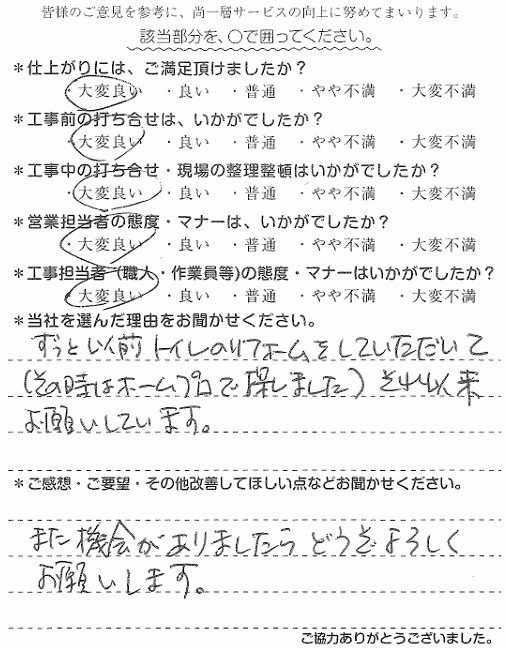 皆様のご意見を参考に、尚一層サービスの向上に努めてまいります。
該当部分を、○で囲ってください。
＊仕上がりには、ご満足頂けましたか？
・大変良い ・良い ・普通 ・やや不満 ・大変不満
＊工事前の打ち合せは、いかがでしたか？
・大変良い ・良い ・普通 ・やや不満 ・大変不満
＊工事中の打ち合せ・現場の整理整頓はいかがでしたか？
・大変良い ・良い ・普通 ・やや不満 ・大変不満
＊営業担当者の態度・マナーは、いかがでしたか？
・大変良い ・良い ・普通 ・やや不満 ・大変不満
＊工事担当者（職人・作業員等)の態度・マナーはいかがでしたか？
・大変良い ・良い ・普通 ・やや不満 ・大変不満
＊当社を選んだ理由をお聞かせください。
ずっと以前トイレのリフォームをしていただいて
(その時はホームプロで探しました) それ以来
お願いしています。
＊ご感想・ご要望・その他改善してほしい点などお聞かせください。
また機会がありましたらどうぞよろしく
お願いします。
ご協力ありがとうございました。